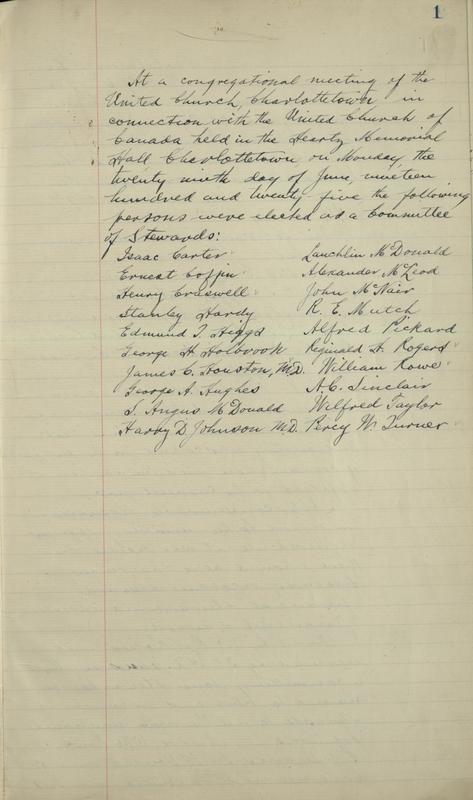 1
At a congregational meeting of the
United Church, Charlottetown, in
connection with the United Church of
Canada held in the Heartz Memorial
Hall Charlottetown on Monday, the
twenty ninth day of June, nineteen
hundred and twenty five the following
persons were elected as a Committee
of Stewards:
Isaac Carter Lauchlin McDonald
Ernest Coffin Alexander McLeod
Henry Craswell John McNair
Stanley Hardy R. E. Mutch
Edmund T. Higgs Alfred Pickard
George H. Holbrook Reginald H. Rogers
James C. Houston, M.D. William Rowe
George A. Hughes A.C. Sinclair
J. Angus McDonald Wilfred Taylor
Harry D. Johnson M.D. Percy W. Turner